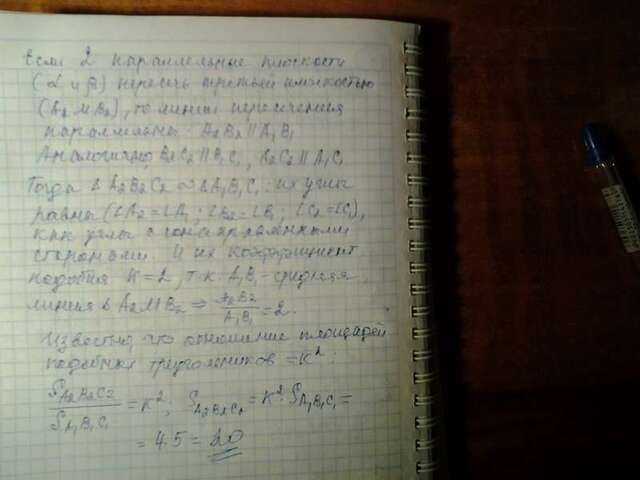 Если 2 параллельные плоскости
(α и β) пересечь третьей плоскостью
(A₂MB₂), то линии пересечения
параллельны: A₂B₂ || A₁B₁
Аналогично, B₂C₂ || B₁C₁, A₂C₂ || A₁C₁
Тогда Δ A₂B₂C₂ ∼ Δ A₁B₁C₁: их углы
равны (∠A₂=∠A₁; ∠B₂=∠B₁; ∠C₂=∠C₁),
как углы с сонаправленными
сторонами. И их коэффициент
подобия K=2, т.к. A₁B₁ - средняя
линия Δ A₂MB₂ ⇒ A₂B₂/A₁B₁ = 2.
Известно, что отношение площадей
подобных треугольников = K²:
S A₂B₂C₂ / S A₁B₁C₁ = K²; S A₂B₂C₂ = K²·S A₁B₁C₁ =
= 4·5 = 20